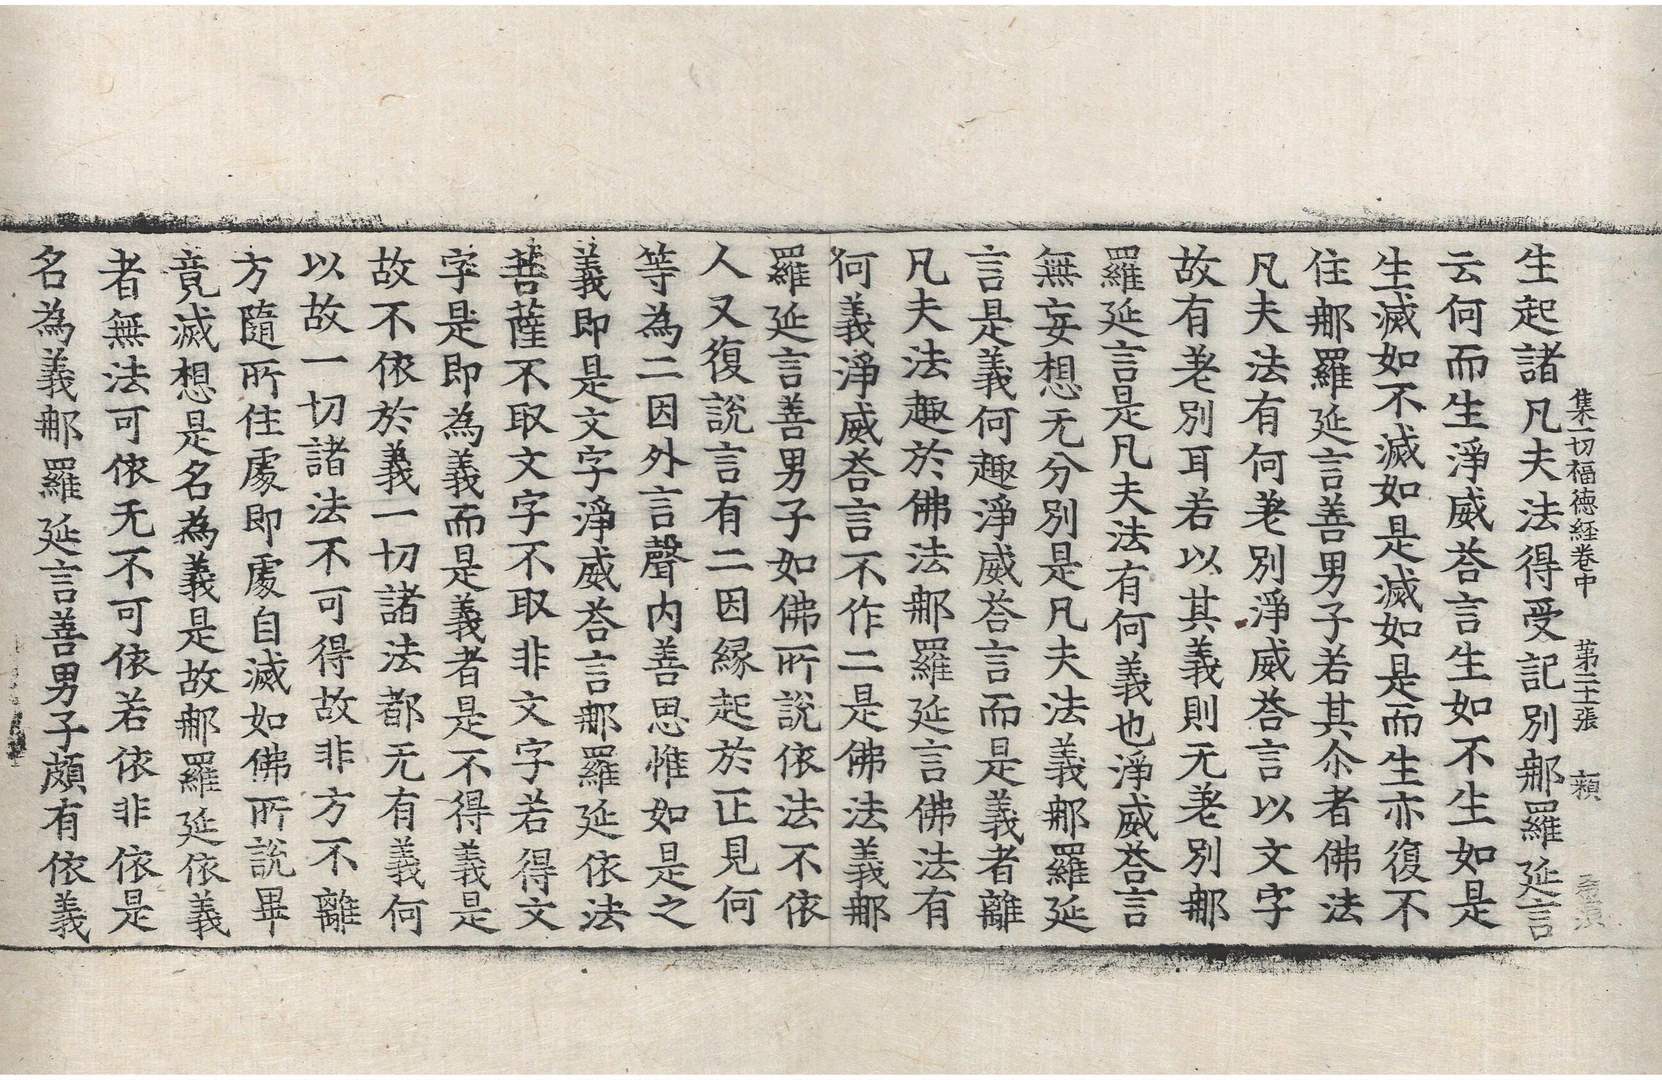 集一切福德経卷中 第二十張 賴
生起諸凡夫法得受記別郍羅延言
云何而生淨威荅言生如不生如是
生滅如不滅如是滅如是而生亦復不
住郍羅延言善男子若其尒者佛法
凡夫法有何差別淨威荅言以文字
故有差別耳若以其義則无差別郍
羅延言是凡夫法有何義也淨威荅言
無妄想无分別是凡夫法義郍羅延
言是義何趣淨威荅言而是義者離
凡夫法趣於佛法郍羅延言佛法有
何義淨威荅言不作二是佛法義郍
羅延言善男子如佛所說依法不依
人又復說言有二因緣起於正見何
等為二因外言聲内善思惟如是之
義即是文字淨威荅言郍羅延依法
菩薩不取文字不取非文字若得文
字是即為義而是義者是不得義是
故不依於義一切諸法都无有義何
以故一切諸法不可得故非方不離
方隨所住處即處自滅如佛所說畢
竟滅想是名為義是故郍羅延依義
者無法可依无不可依若依非依是
名為義郍羅延言善男子頗有依義